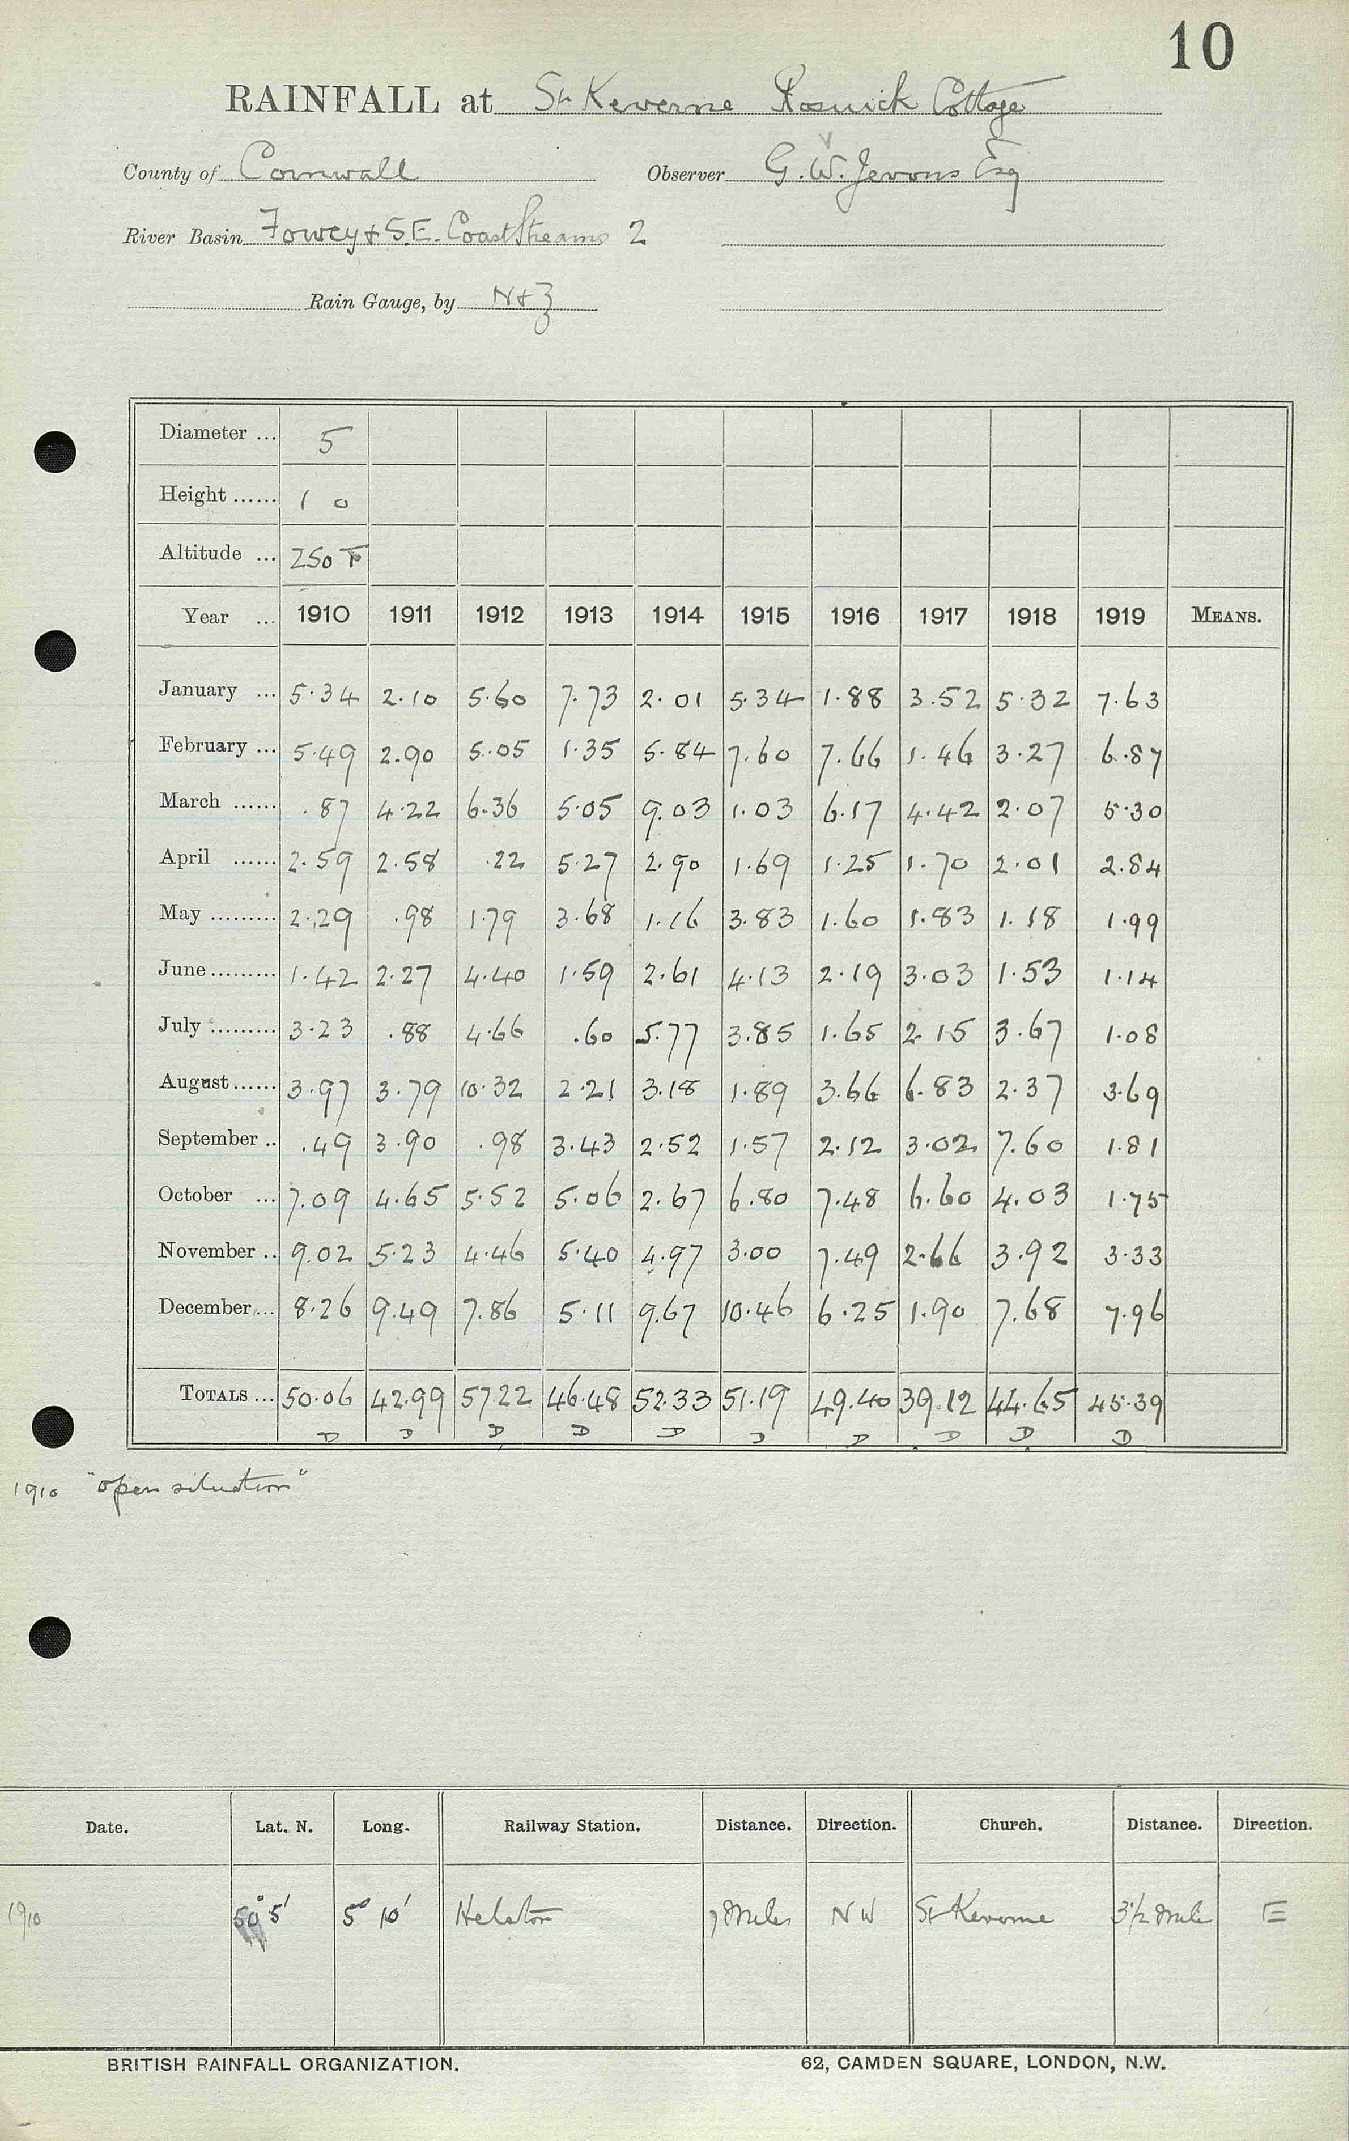 10
RAINFALL at St Keverne Rosuick Cottage
County of Cornwall Observer G. W. Jevons Esq
River Basin Fowey & S E. Coast Streams 2
Rain Gauge, by N & Z
Diameter ... 5
Height ...... 1 0
Altitude ... 250 T
Year ... 1910 1911 1912 1913 1914 1915 1916 1917 1918 1919 MEANS.
January ... 5.34 2.10 5.60 7.73 2.01 5.34 1.88 3.52 5.32 7.63
February ... 5.49 2.90 5.05 1.35 5.84 7.60 7.66 1.46 3.27 6.87
March ...... .87 4.22 6.36 5.05 9.03 1.03 6.17 4.42 2.07 5.30
April ...... 2.59 2.58 .22 5.27 2.90 1.69 1.25 1.70 2.01 2.84
May ......... 2.29 .98 1.79 3.68 1.16 3.83 1.60 1.83 1.18 1.99
June ......... 1.42 2.27 4.40 1.59 2.61 4.13 2.19 3.03 1.53 1.14
July ......... 3.23 .88 4.66 .60 5.77 3.85 1.65 2.15 3.67 1.08
August ...... 3.97 3.79 10.32 2.21 3.18 1.89 3.66 6.83 2.37 3.69
September .. .49 3.90 .98 3.43 2.52 1.57 2.12 3.02 7.60 1.81
October ... 7.09 4.65 5.52 5.06 2.67 6.80 7.48 6.60 4.03 1.75
November .. 9.02 5.23 4.46 5.40 4.97 3.00 7.49 2.66 3.92 3.33
December ... 8.26 9.49 7.86 5.11 9.67 10.46 6.25 1.90 7.68 7.96
TOTALS ... 50.06 42.99 57.22 46.48 52.33 51.19 49.40 39.12 44.65 45.39
D D D D D D D D D D
1910 "open situation"
Date. Lat. N. Long. Railway Station. Distance. Direction. Church. Distance. Direction.
1910 50° 5' 5° 10' Helston 7 Miles N W St Keverne 3 1/2 Mile E
BRITISH RAINFALL ORGANIZATION. 62, CAMDEN SQUARE, LONDON, N.W.